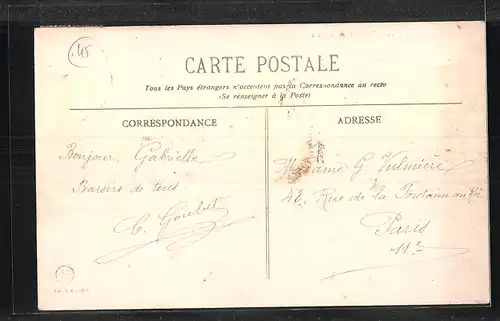 45
CARTE POSTALE
Tous les Pays étrangers n'acceptent pas la Correspondance au recto
(Se renseigner à la Poste)
CORRESPONDANCE
Bonjour Gabrielle
Baisers de tous
C. Goubet
ADRESSE
Madame G Vulmière
42, Rue de la Fontaine au Roi
Paris
11e